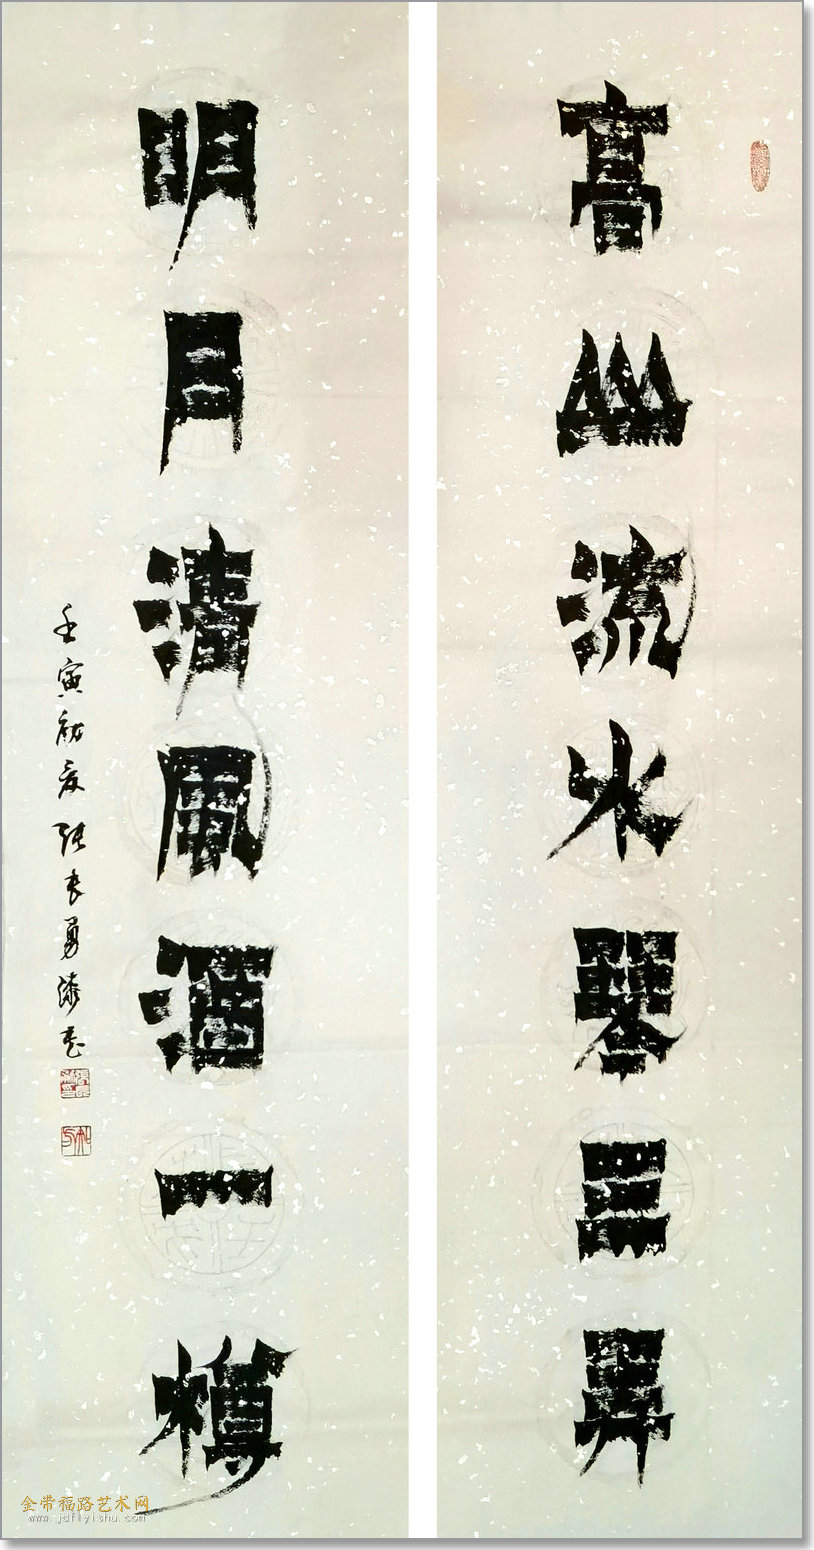 高山流水琴三弄
明月清風酒一樽
壬寅初夏張長勇漆書
金带福路艺术网
www.jdflyishu.com